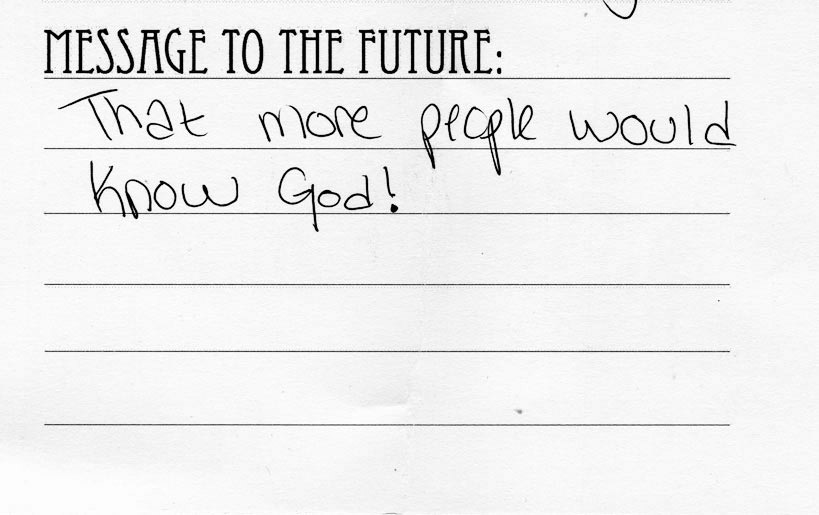 MESSAGE TO THE FUTURE:
That more people would
Know God!